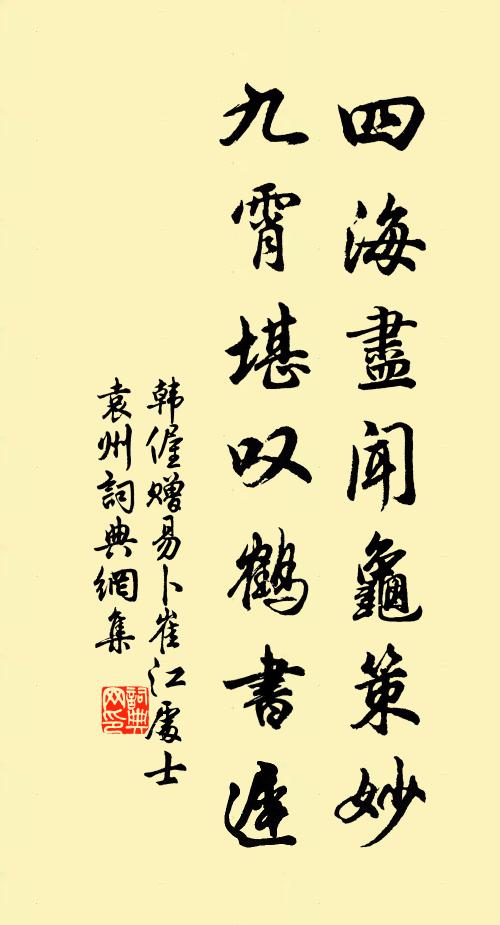 四海盡聞龜策妙
九霄堪叹鶴書遲
韩偓赠易卜崔江處士
袁州詞典網集
詞典网印